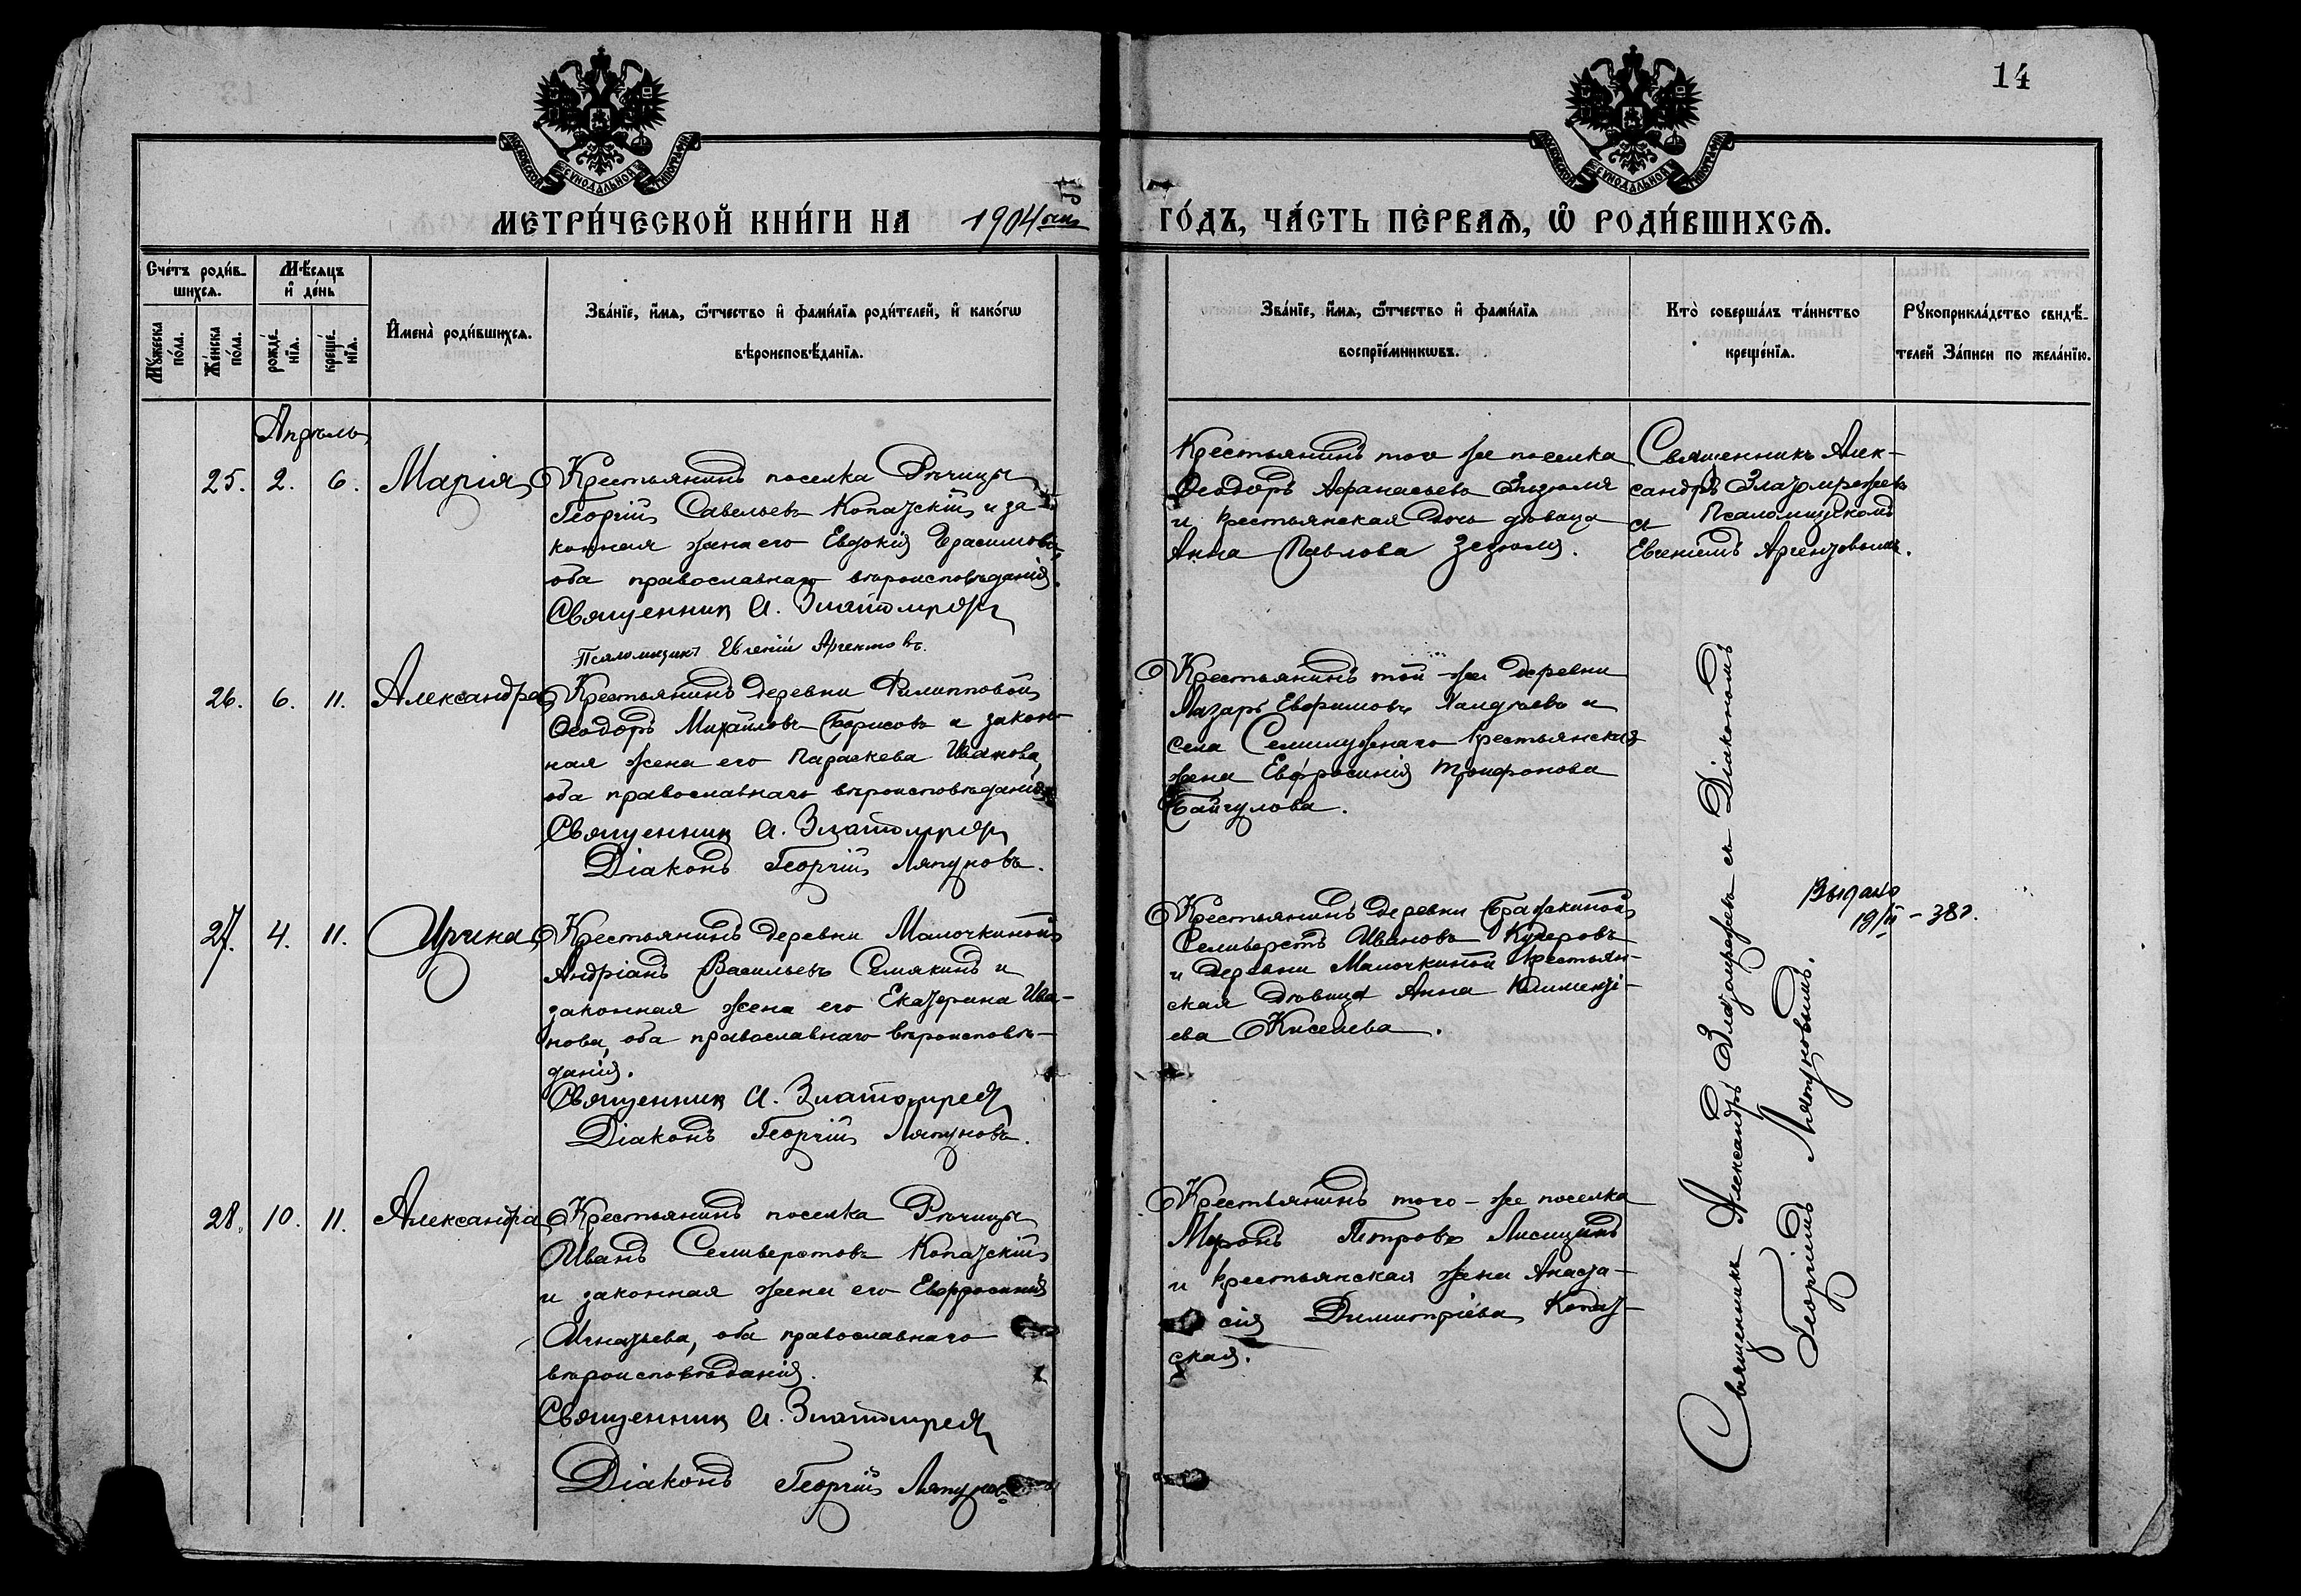 14
МОСКОВСКОЙ СѴНОДАЛЬНОЙ ТИПОГРАФІИ
МОСКОВСКОЙ СѴНОДАЛЬНОЙ ТИПОГРАФІИ
МЕТРИ́ЧЕСКОЙ КНИ́ГИ НА 1904 ГО́ДЪ, ЧА́СТЬ ПЕ́РВАѦ, Ѡ҆ РОДИ́ВШИХСѦ.
Сче́тъ роди́в-
шихсѧ.
Мꙋ́жеска
по́ла.
Же́нска
по́ла.
Мѣ́сѧцъ
и҆ де́нь
рожде́-
нїѧ.
креще́-
нїѧ.
И҆мена̀ роди́вшихсѧ.
Зва́нїе, и҆́мѧ, ѻ҆́тчество и҆ фами́лїѧ роди́телей, и҆ како́гѡ
вѣроисповѣ́данїѧ.
Зва́нїе, и҆́мѧ, ѻ҆́тчество и҆ фами́лїѧ
воспрїе́мникѡвъ.
Кто̀ соверша́лъ та́инство
креще́нїѧ.
Рꙋкоприкла́дство свидѣ́-
телей за́писи по жела́нїю.
Апрѣль
25. 2. 6. Марія
Крестьянинъ поселка Рѣчицы
Георгій Савельевъ Копатскій и за-
конная жена его Евдокія Герасимова,
оба православнаго вѣроисповѣданія.
Священник А. Златомреж
Псаломщикъ Евгеній Аргентовъ.
Крестьянинъ того же поселка
Ѳеодоръ Афанасьевъ
и крестьянская дочь дѣвица
Анна Павлова
Священникъ Алек-
сандръ Златомрежевъ
съ Псаломщикомъ
Евгеніемъ Аргентовымъ.
26. 6. 11. Александра
Крестьянинъ деревни Филипповой
Ѳеодоръ Михайловъ Борисовъ и закон-
ная жена его Параскева Иванова,
оба православнаго вѣроисповѣданія.
Священник А. Златомреж
Діаконъ Георгій Ляпуновъ.
Крестьянинъ той-же деревни
Лазарь Евфимовъ Халдѣевъ и
села Семилужнаго крестьянская
жена Евфросинія Трифонова
Байгулова.
27. 4. 11. Ирина
Крестьянинъ деревни Малочкиной
Андріанъ Васильевъ Семякинъ и
законная жена его Екатерина Ива-
нова, оба православнаго вѣроисповѣ-
данія.
Священник А. Златомреж
Діаконъ Георгій Ляпуновъ.
Крестьянинъ деревни Бражкиной
Селиверстъ Ивановъ Кучеровъ
и деревни Малочкиной крестьян-
ская дѣвица Анна Клименті-
ева Киселева.
Выдано
19 – 382.
28. 10. 11. Александра
Крестьянинъ поселка Рѣчицы
Иванъ Селиверстовъ Копатскій
и законная жена его Евфросинія
Игнатьева, оба православнаго
вѣроисповѣданія.
Священник А. Златомреж
Діаконъ Георгій Ляпуновъ
Крестьянинъ того-же поселка
Миронъ Петровъ Лисицинъ
и крестьянская жена Анаста-
сія Димитріева Копат-
ская.
Священникъ Александръ Златомрежевъ съ Діакономъ
Георгіемъ Ляпуновымъ.